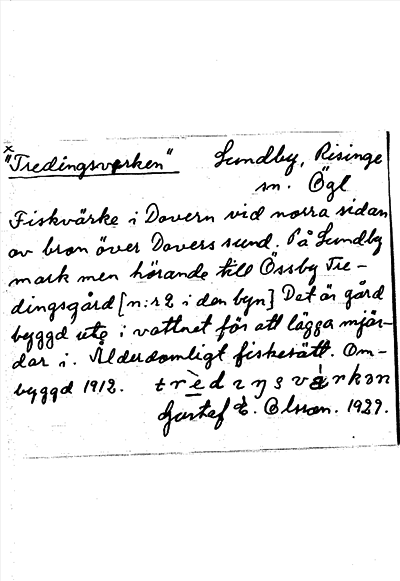 x
"Tredingsverken" Lundby, Risinge
sn. Ögl
Fiskvärke i Dovern vid norra sidan
av bron över Dovers sund. På Lundby
mark men hörande till Össby Tre-
dingsgård [n:r 2 i den byn] Det är gård
byggd ute i vattnet för att lägga mjär-
dar i. Ålderdomligt fiskesätt. Om-
byggd 1912. trèdıŋsvàrkən
Gustaf E. Olsson. 1929.